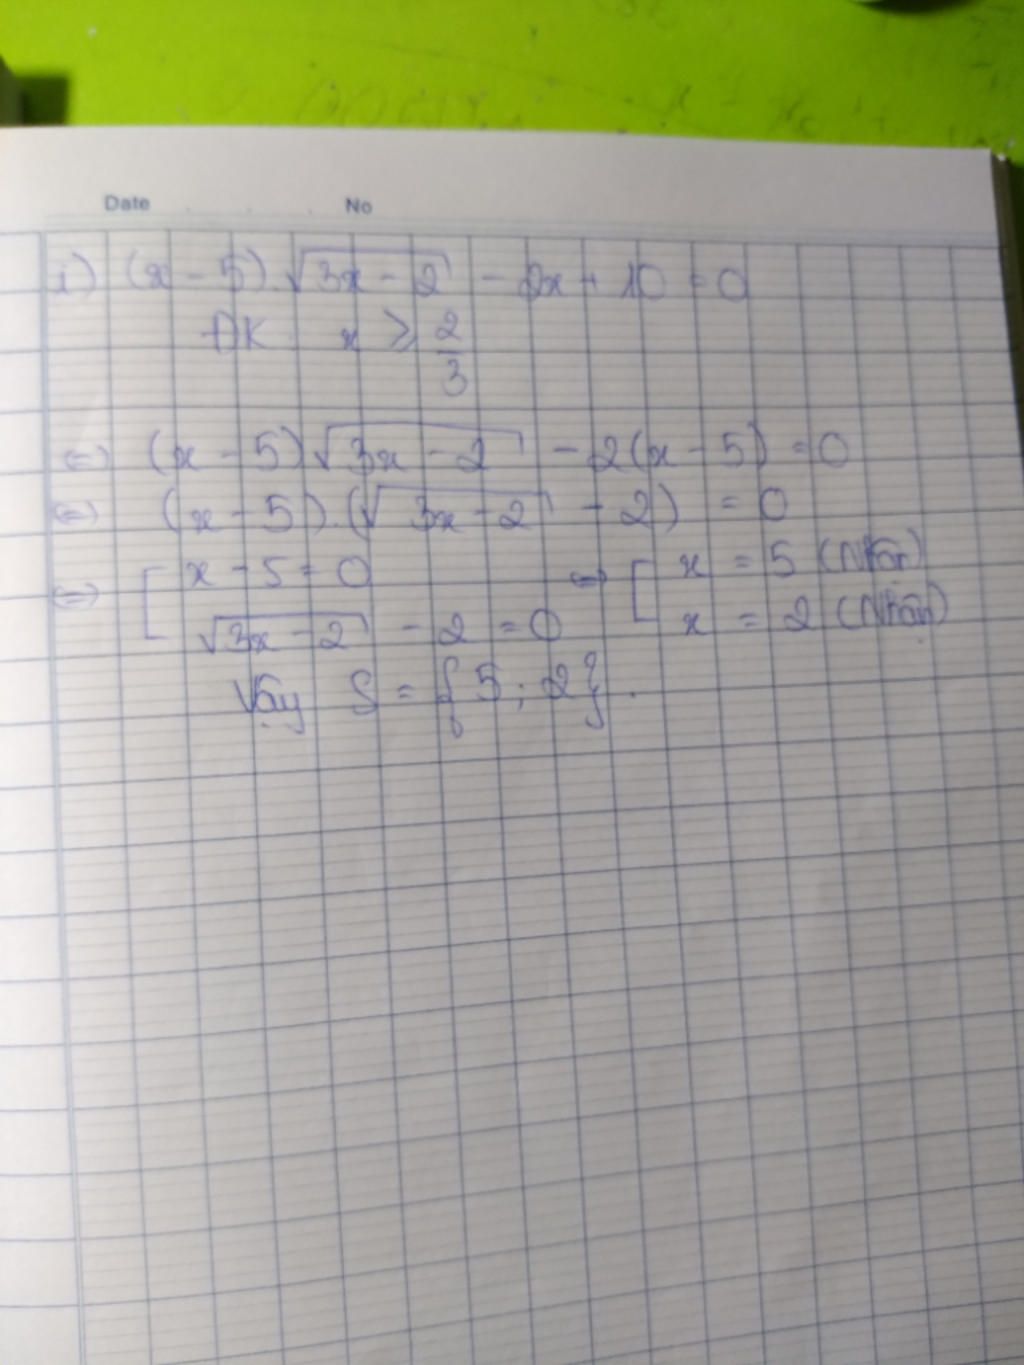 Date No
i) (x - 5).√(3x - 2) - 2x + 10 = 0
ĐK x ≥ 2/3
⇔ (x - 5)√(3x - 2) - 2(x - 5) = 0
⇔ (x - 5).(√(3x - 2) - 2) = 0
⇔ [ x - 5 = 0 ⇔ [ x = 5 (Nhận)
√(3x - 2) - 2 = 0 x = 2 (Nhận)
Vậy S = {5 ; 2}.